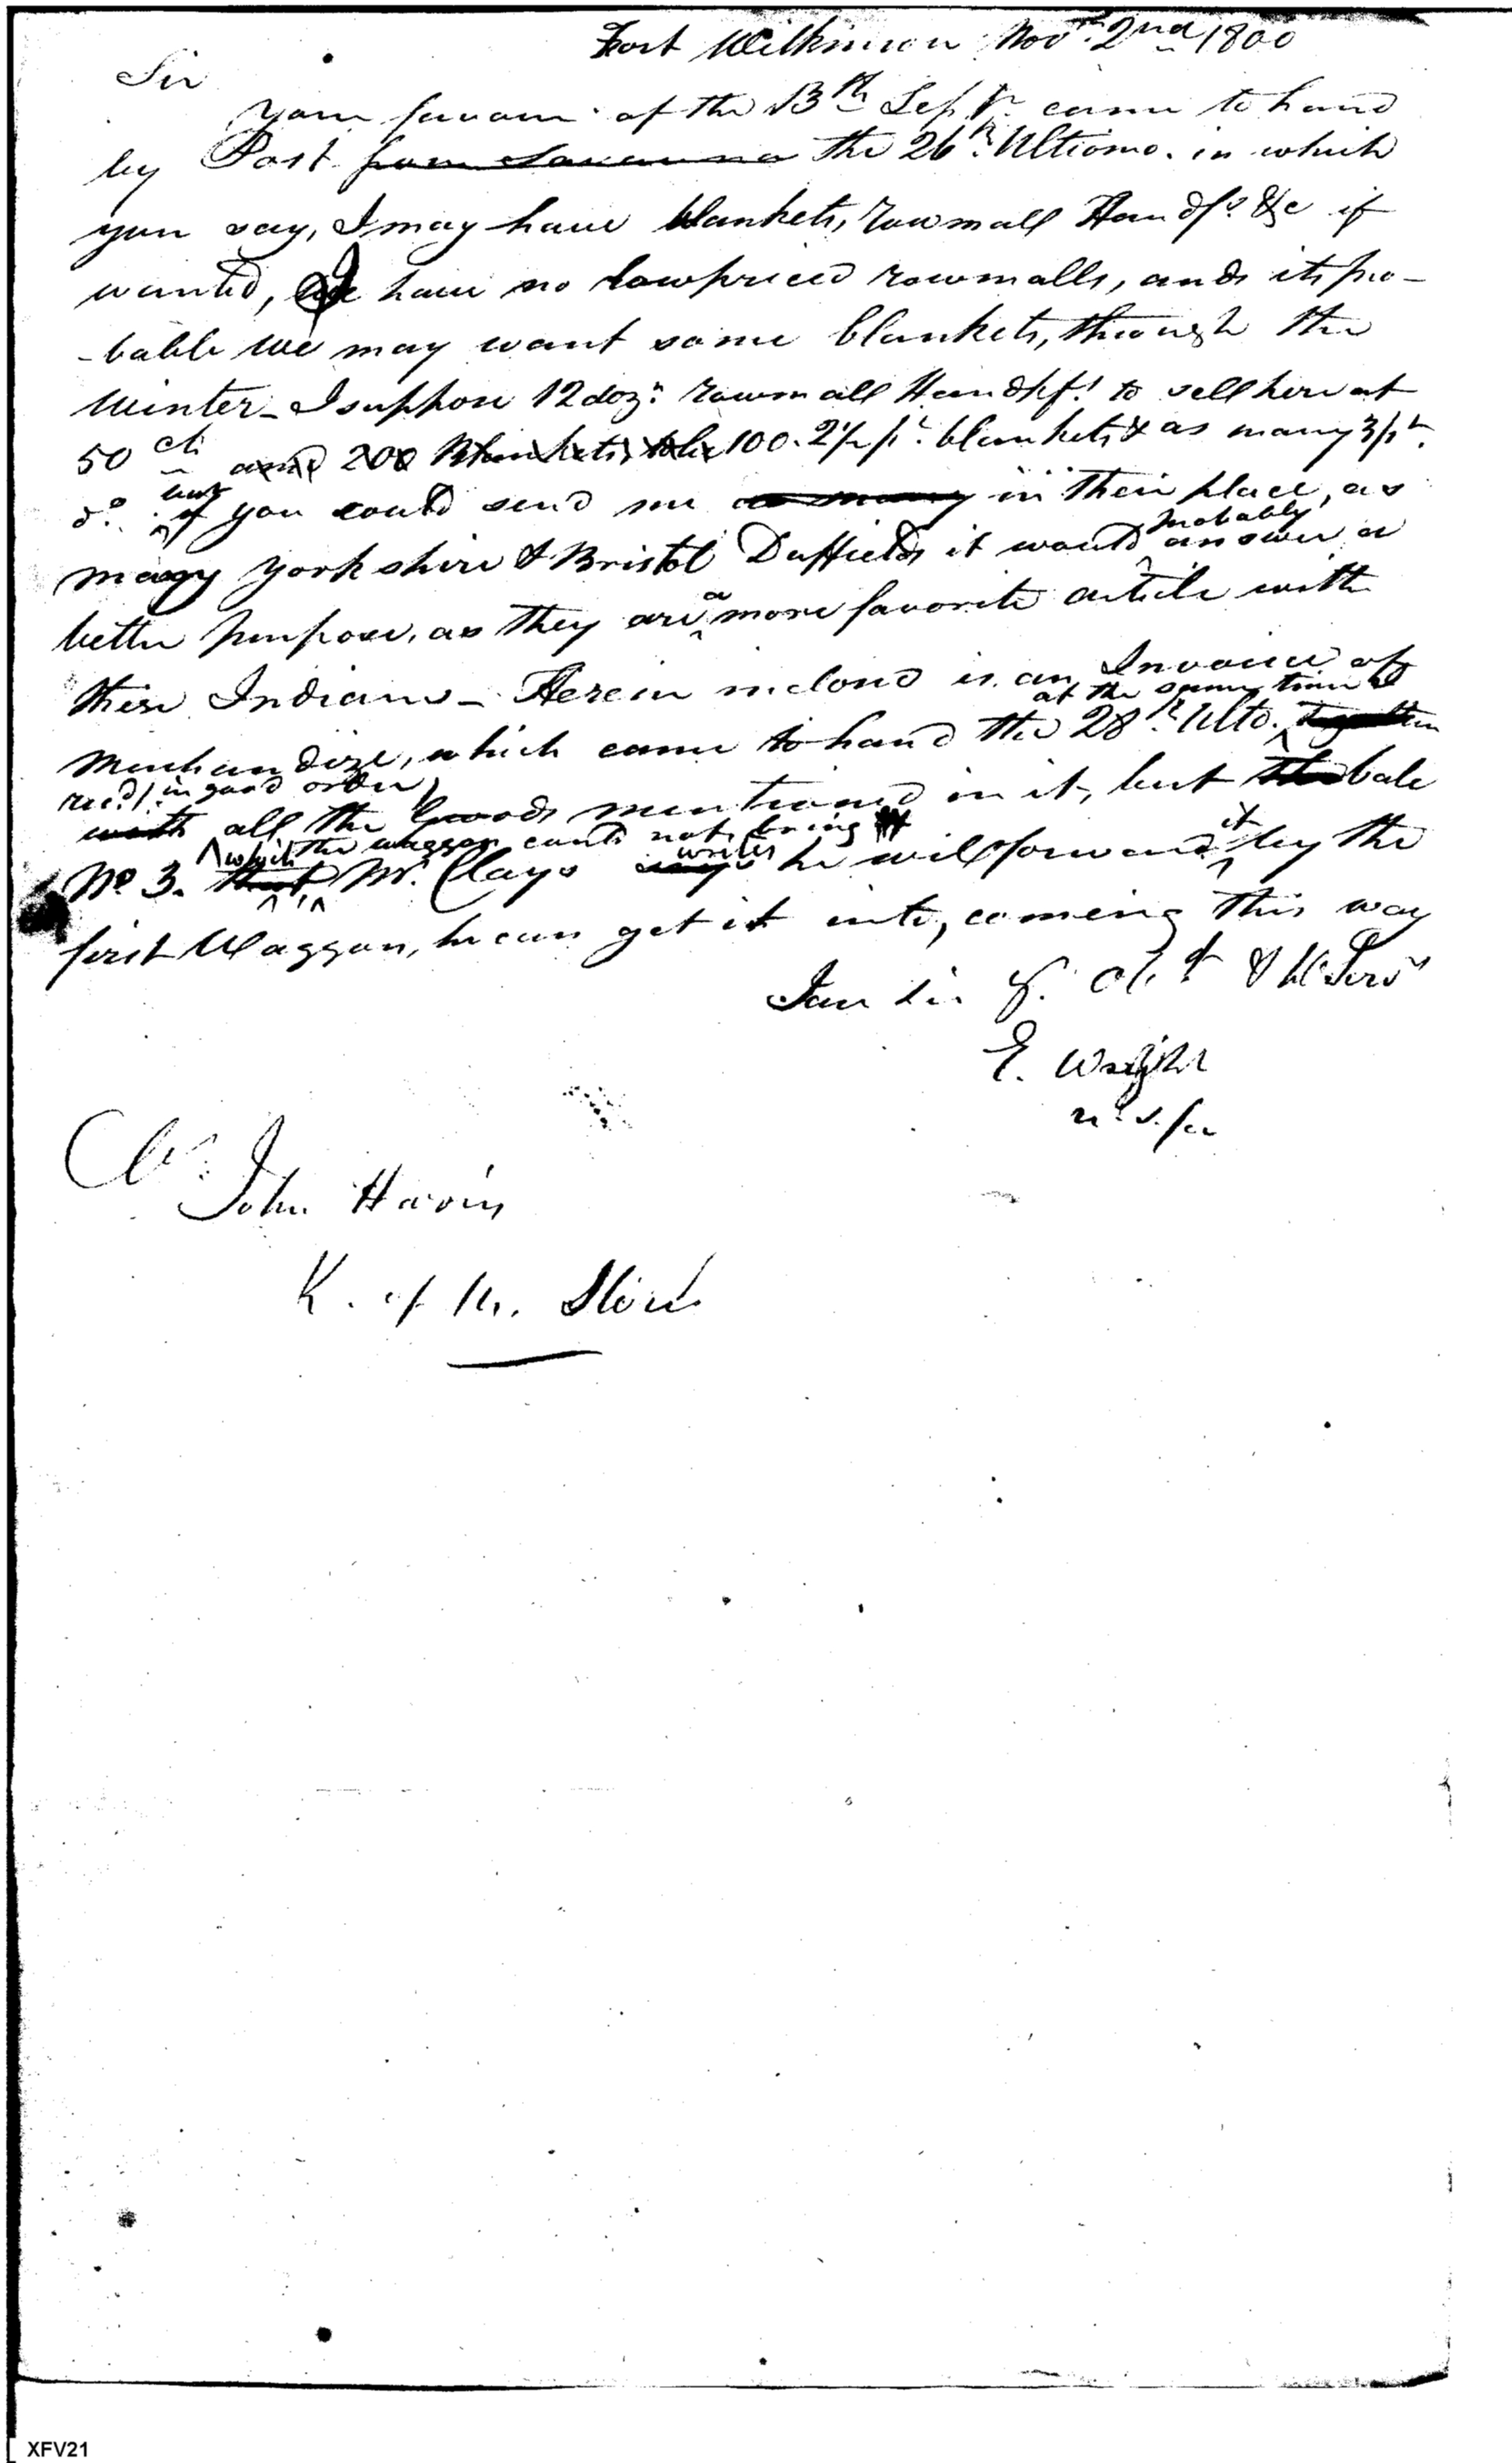 Fort Wilkinson Novr. 2nd 1800
Sir
your favour of the 13th Sepr. came to hand
by Post from Savanna the 26th. Ultiomo. in which
you say, I may have blankets, rowmall Handfs. &c if
wanted, I have no lowpriced rowmalls, and its pro-
-bable we may want some blankets, through the
Winter - I suppose 12 dozn. rowmall Handkfs. to sell here at
50 cts and 200 Blankets, 100. 2½ pt. blankets & as many 3 pt.
do. but if you could send me as many in their place, as
probably
many Yorkshire & Bristol Duffields it would answer a
better purpose, as they are a more favorite article with
these Indians - Herein inclosed is an Invoice of
at the same time I
Merchandize, which came to hand the 28th. Ulto. together
recd. in good order
with all the Goods mentioned in it, but the bale
which the waggon could not bring
No. 3. that Mr. Clays says writes he will forward it by the
first Waggon, he can get it into, coming this way
I am Sir Y. Obt. & H Servt
E. Wright
Mr. John Harris
K. of M. Store
XFV21